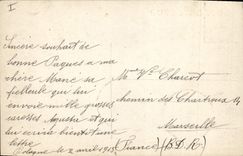 I
Sincère souhait de
bonne Pâques à ma
chère Mané sa
filleule qui lui
envoie mille grosses
caresses Agusta et qui
lui écrira bientôt une
lettre
le 2 avril 1915
Mme Vve Charcot
chemin des Chartreux 14
Marseille
(France) (B.D.R)